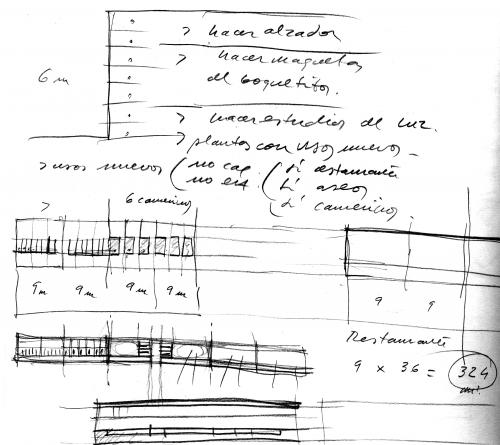 > hacer alzador
> hacer maquetas
6 m
de boquetitos.
> hacer estudios de luz.
> plantas con usos nuevos -
> usos nuevos
no cap.
sí restaurante
sí aseos
sí camerinos.
>
6 camerinos
9m 9m 9m 9m
9 9
Restaurante
9 x 36 = 324
m²